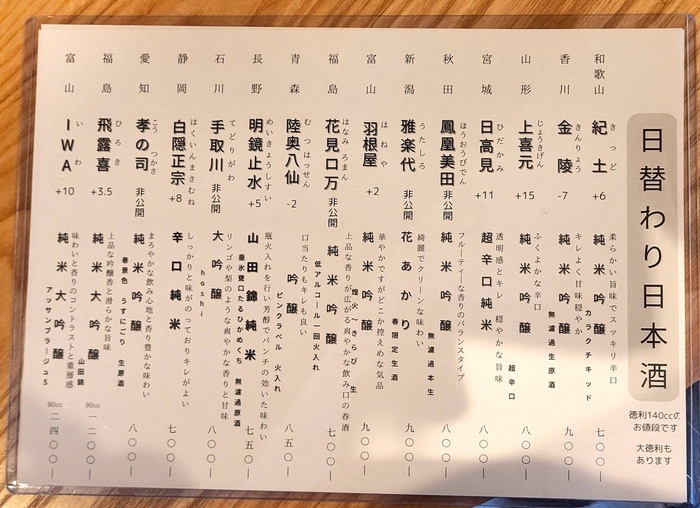 日替わり日本酒
徳利140ccの
お値段です
大徳利も
あります
和歌山
きっど
紀土
+6
柔らかい旨味でスッキリ辛口
純米吟醸
カラクチキッド
七〇〇―
香川
きんりょう
金陵
-7
キレよく甘味穏やか
純米吟醸
無濾過生原酒
九〇〇―
山形
じょうきげん
上喜元
+15
ふくよかな辛口
純米吟醸
超辛口
八〇〇―
宮城
ひだかみ
日高見
+11
透明感とキレ 穏やかな旨味
超辛口純米
八〇〇―
秋田
ほうおうびでん
鳳凰美田
非公開
フルーティーな香りのバランスタイプ
純米吟醸
無濾過本生
八〇〇―
新潟
うたしろ
雅楽代
非公開
綺麗でクリーンな味わい
花あかり
春限定生酒
九〇〇―
富山
はねや
羽根屋
+2
華やかですがどこか控えめな気品
純米吟醸
煌火~きらび 生
九〇〇―
福島
はなみろまん
花見口万
非公開
上品な香りが広がる爽やかな飲み口の春酒
純米吟醸
低アルコール一回火入れ
七〇〇―
青森
むつはっせん
陸奥八仙
-2
口当たりもキレも良い
吟醸
ピンクラベル 火入れ
八五〇―
長野
めいきょうしすい
明鏡止水
+5
瓶火入れを行い芳醇でパンチの効いた味わい
山田錦純米
垂氷甕口たるひかめくち 無濾過原酒
七五〇―
石川
てどりがわ
手取川
非公開
リンゴや梨のような爽やかな香りと甘味
大吟醸
hoshi
八〇〇―
静岡
はくいんまさむね
白隠正宗
+8
しっかりと味がのっておりキレがよい
辛口純米
七〇〇―
愛知
こうのつかさ
孝の司
非公開
まろやかな飲み心地と香り豊かな味わい
純米吟醸
春景色 うすにごり 生原酒
八〇〇―
福島
ひろき
飛露喜
+3.5
上品な吟醸香と滑らかな旨味
純米大吟醸
山田錦
90cc
一二〇〇―
富山
いわ
IWA
+10
味わいと香りのコントラストと重層感
純米大吟醸
アッサンブラージュ5
90cc
二四〇〇―